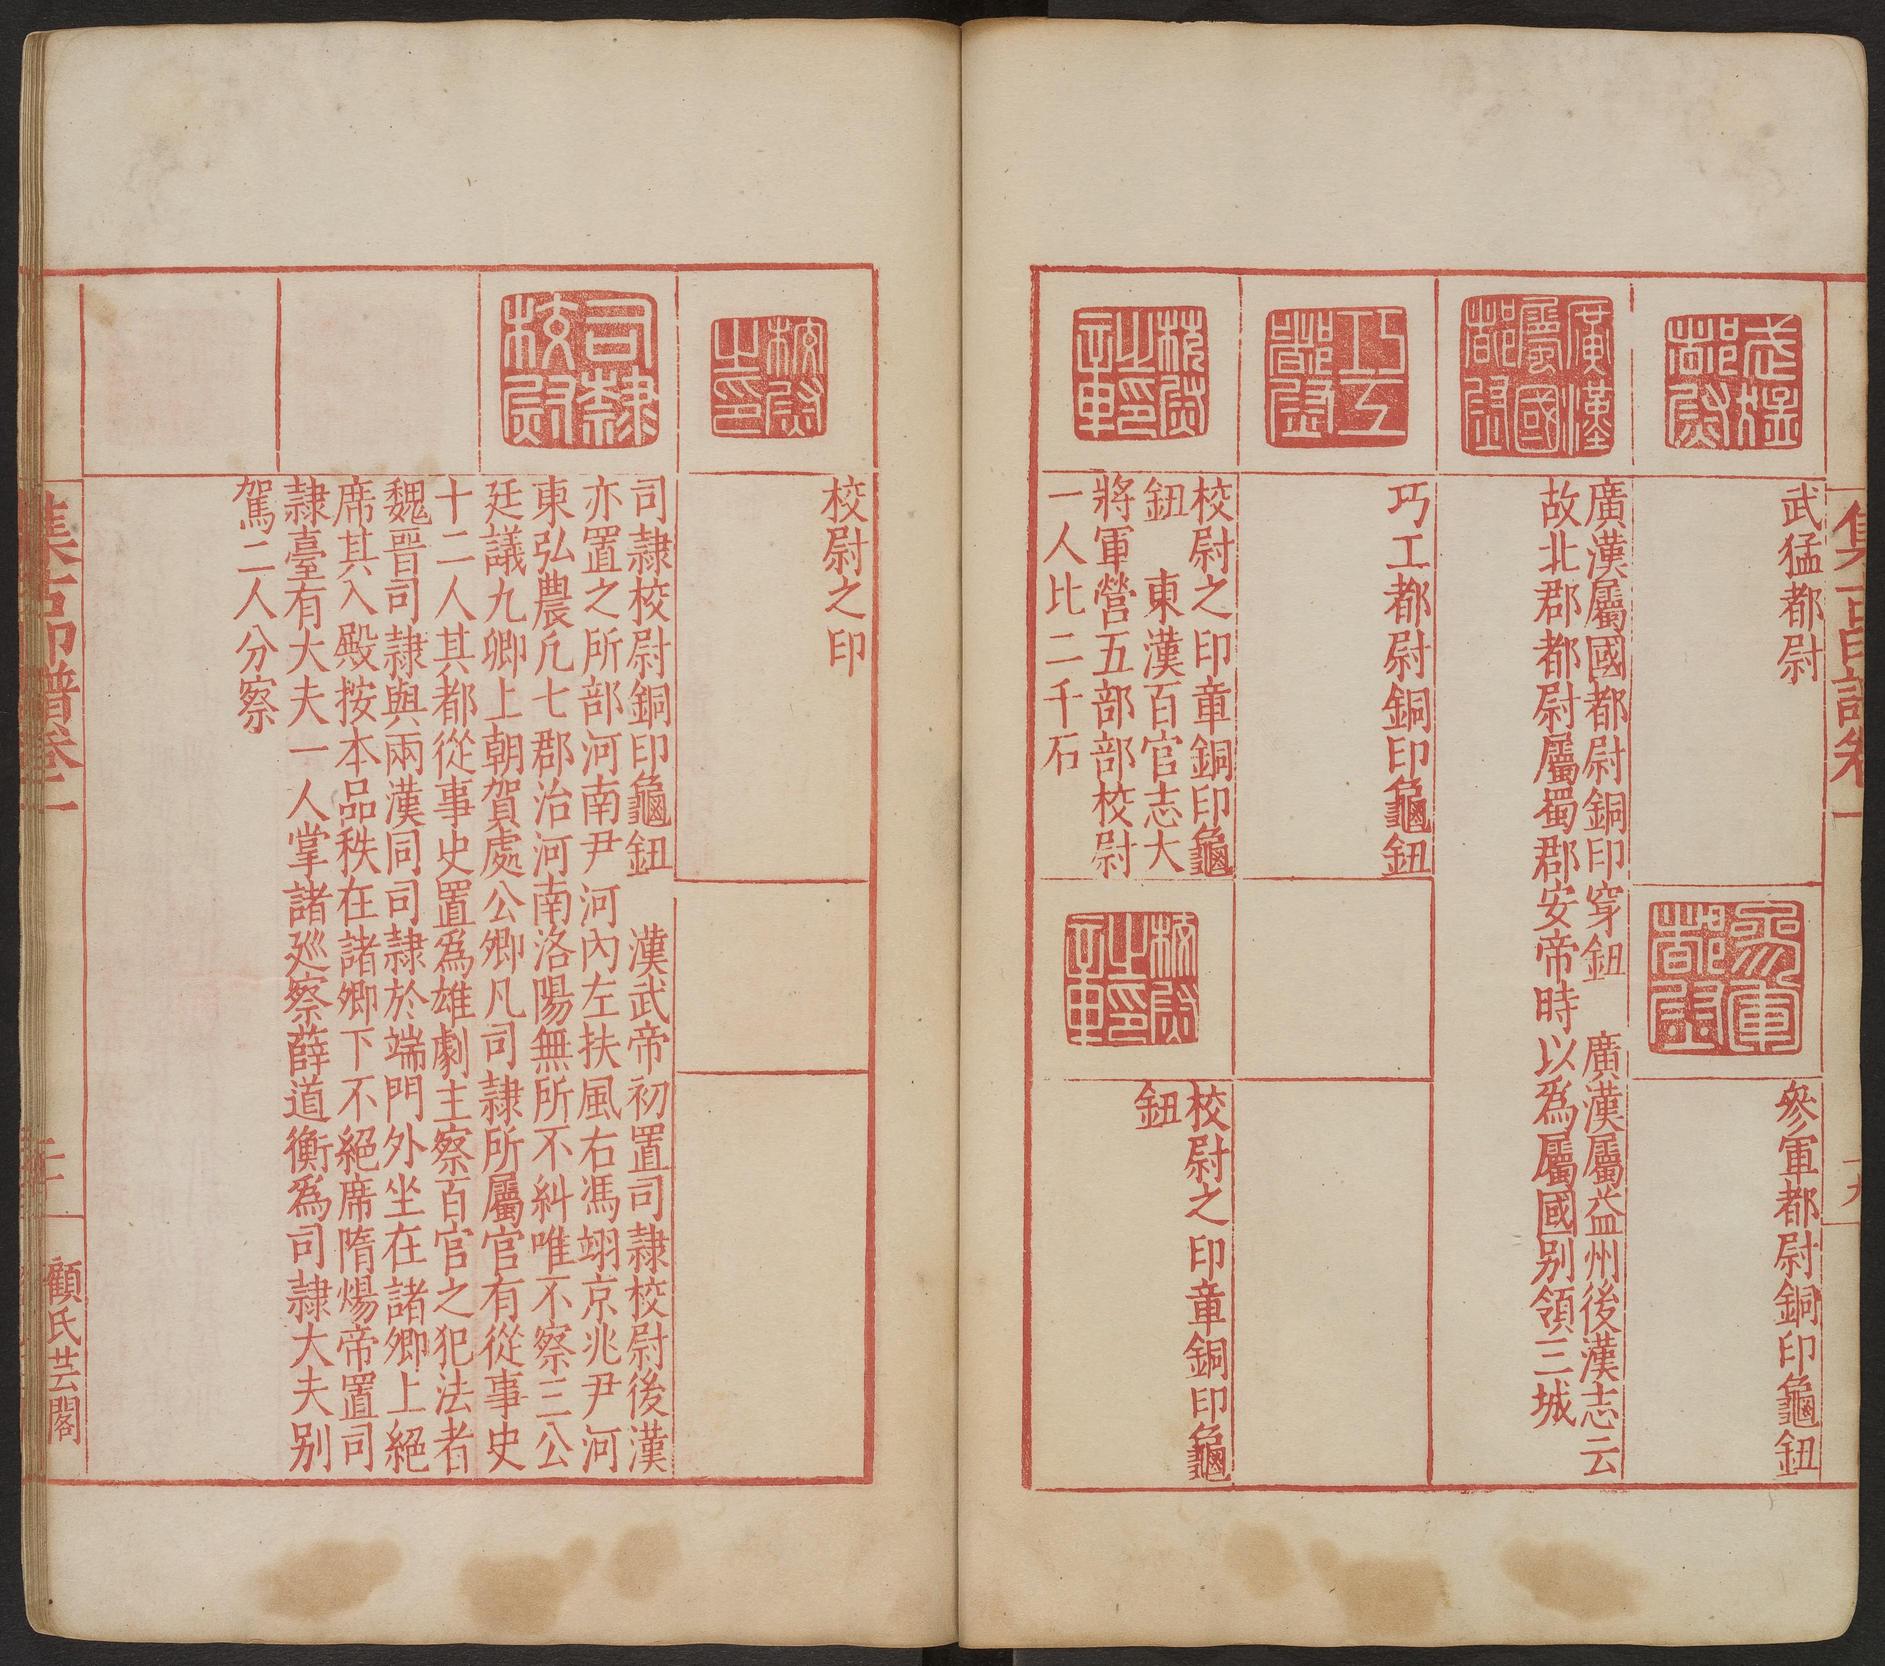 集古印譜卷二
十九
武猛都尉
武猛都尉
參軍都尉
參軍都尉銅印龜鈕
廣漢屬國都尉
廣漢屬國都尉銅印穿鈕　廣漢屬益州後漢志云
故北郡都尉屬蜀郡安帝時以爲屬國別領三城
巧工都尉
巧工都尉銅印龜鈕
校尉之印章
校尉之印章銅印龜
鈕　東漢百官志大
將軍營五部部校尉
一人比二千石
校尉之印章
校尉之印章銅印龜
鈕
校尉之印
校尉之印
司隸校尉
司隸校尉銅印龜鈕　漢武帝初置司隸校尉後漢
亦置之所部河南尹河內左扶風右馮翊京兆尹河
東弘農凡七郡治河南洛陽無所不糾唯不察三公
廷議九卿上朝賀處公卿凡司隸所屬官有從事史
十二人其都從事史置爲雄劇主察百官之犯法者
魏晉司隸與兩漢同司隸於端門外坐在諸卿上絕
席其入殿按本品秩在諸卿下不絕席隋煬帝置司
隸臺有大夫一人掌諸巡察薛道衡爲司隸大夫別
駕二人分察
集古印譜卷二
二十
顧氏芸閣